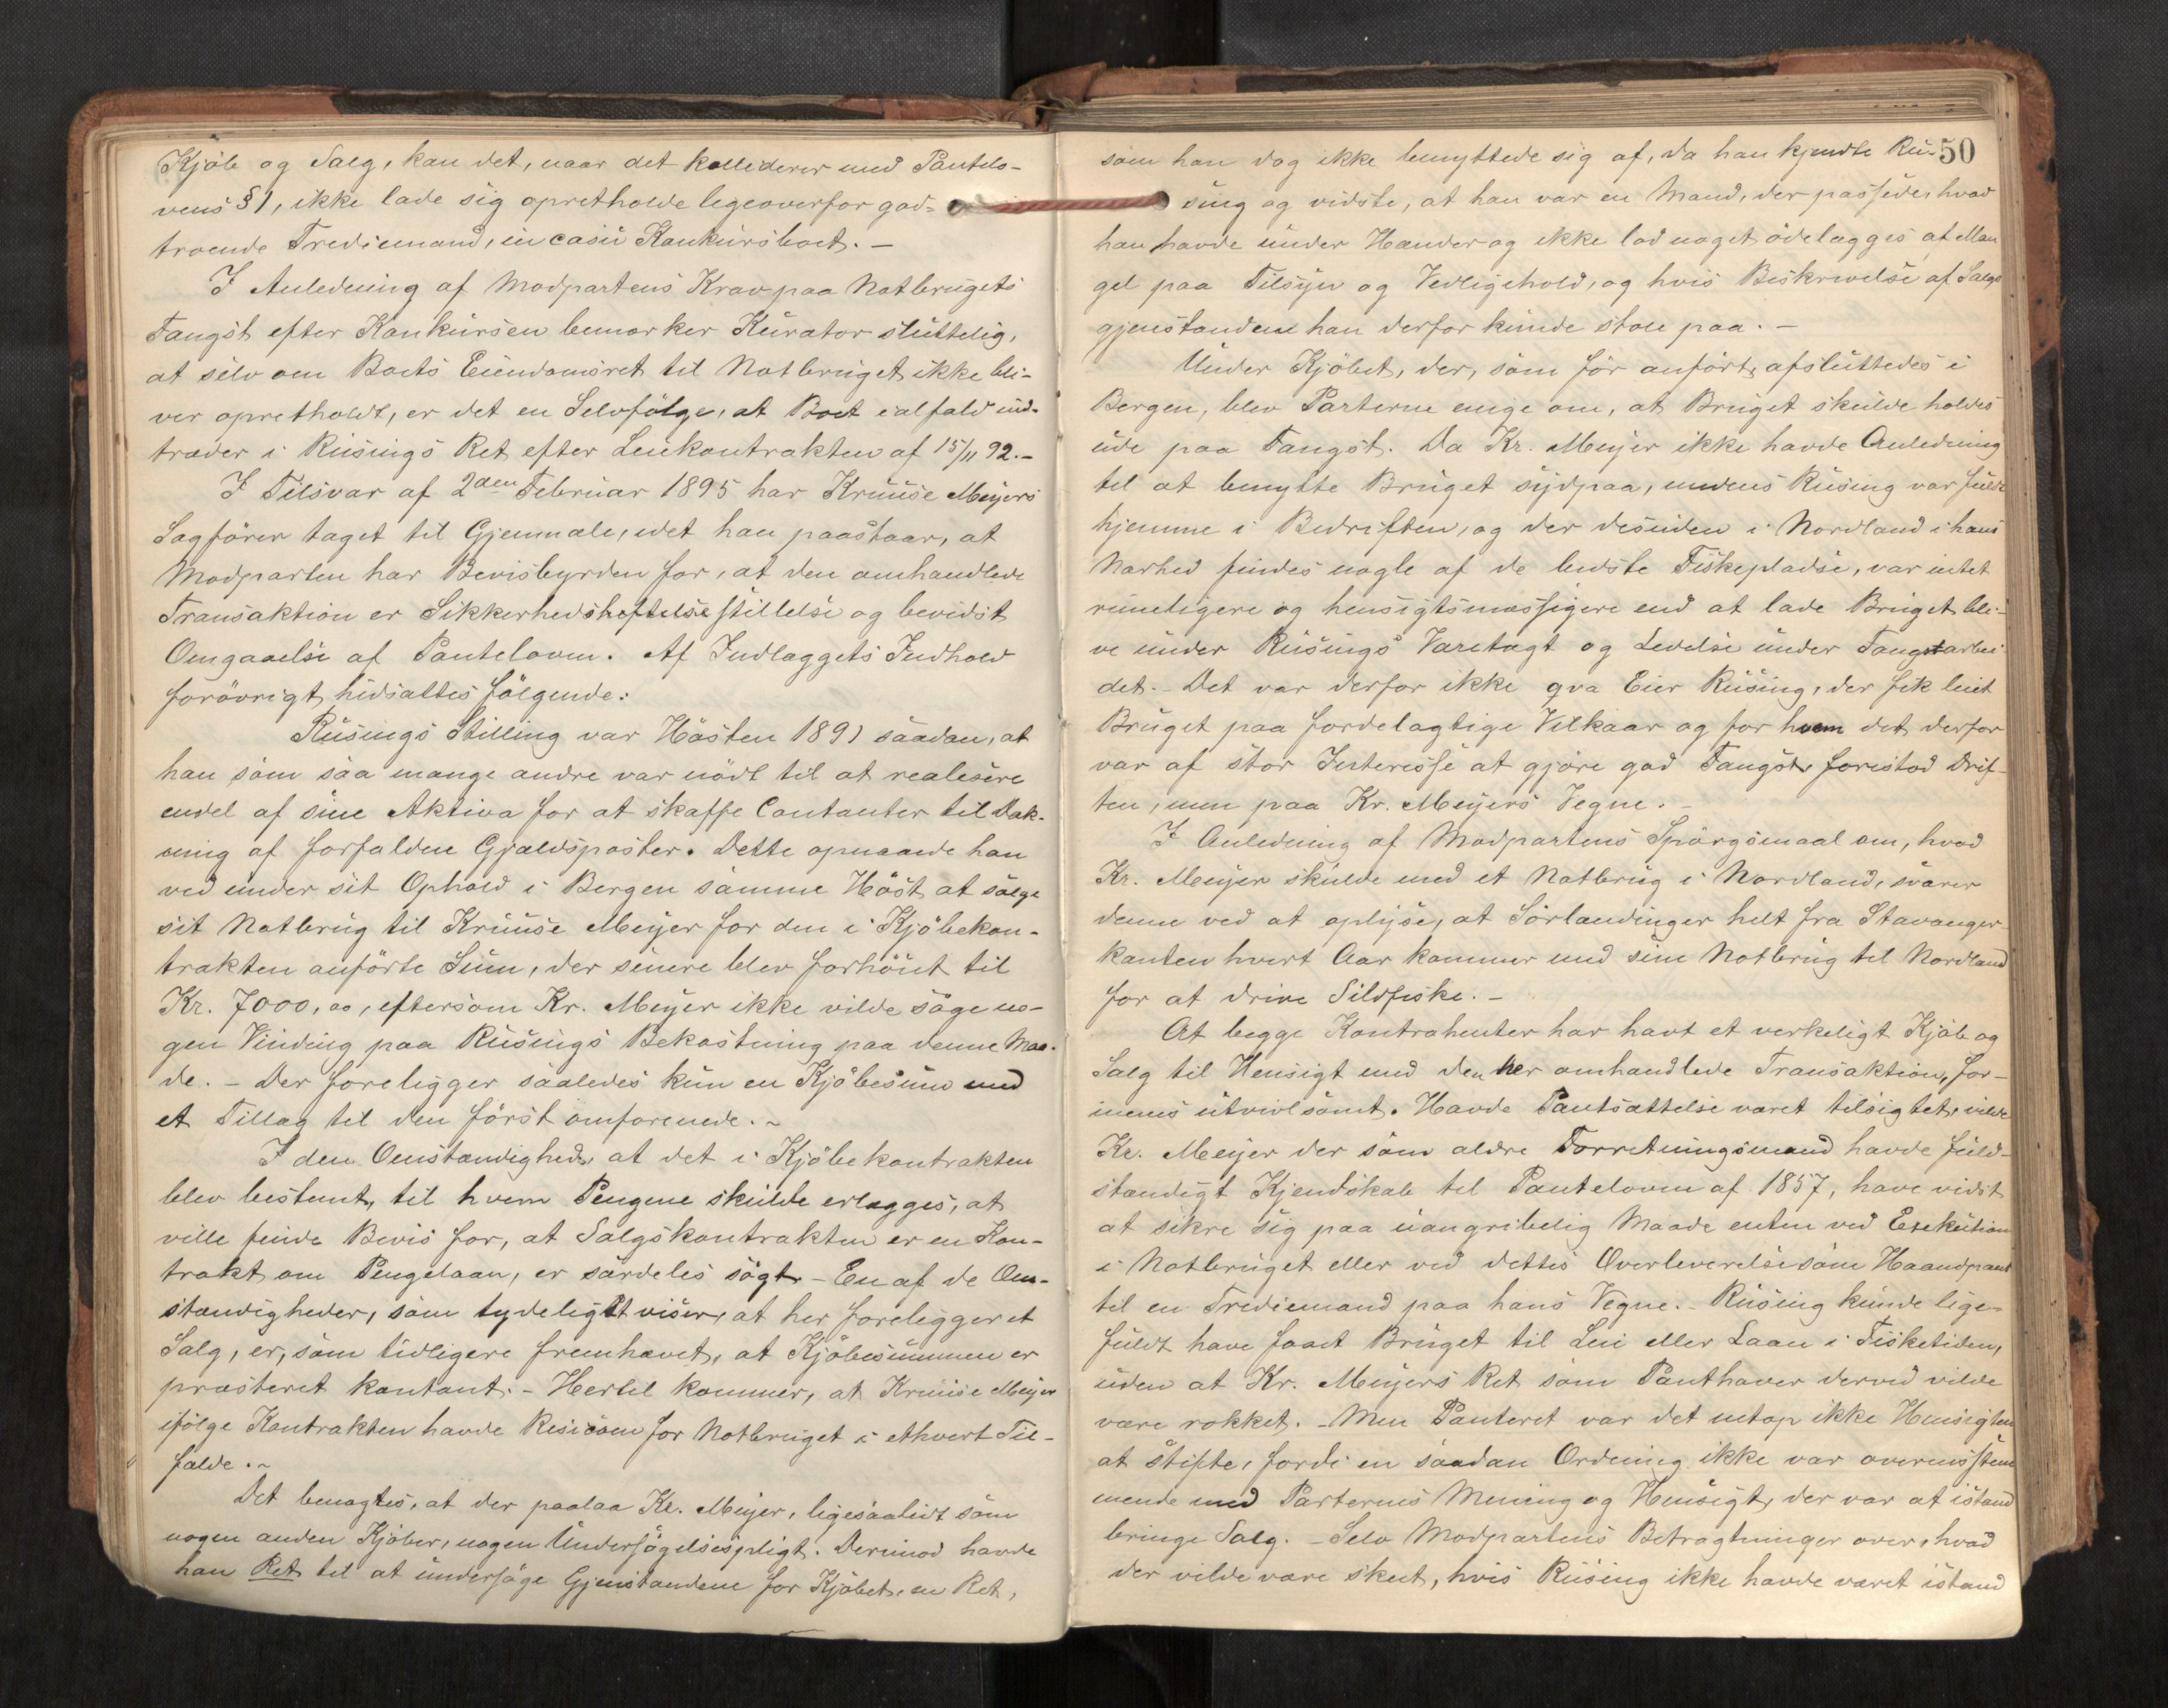 Kjöb og Salg, kan det, naar det kolliderer med Pantelo-
vens § 1, ikke lade sig opretholde ligeoverfor god-
troende Trediemand, in casu Konkursboet. –
I Anledning af Modpartens Krav paa Notbrugets
Fangst efter Konkursen bemærker Kurator sluttelig,
at selv om Boets Eiendomsret til Notbruget ikke bli-
ver opretholdt, er det en Selvfölge, at Boet ialfald ind-
træder i Rüsings Ret efter Leiekontrakten af 15/11 92. –
I Tilsvar af 2den Februar 1895 har Kruuse Meyers
Sagförer taget til Gjenmæle, idet han paastaar, at
Modparten har Bevisbyrden for, at den omhandlede
Transaktion er Sikkerhedsheftelsestillelse og bevidst
Omgaaelse af Panteloven. Af Indlæggets Indhold
forövrigt hidsættes fölgende:
Rüsings Stilling var Hösten 1891 saadan, at
han som saa mange andre var nödt til at realisere
endel af sine Aktiva for at skaffe Contanter til Dæk-
ning af forfaldne Gjældsposter. Dette opnaaede han
ved under sit Ophold i Bergen samme Höst at sælge
sit Notbrug til Kruuse Meyer for den i Kjöbekon-
trakten anförte Sum, der senere blev forhöiet til
Kr. 7000,00, eftersom Kr. Meyer ikke vilde söge no-
gen Vinding paa Rüsings Bekostning paa denne Maa-
de. – Der foreligger saaledes kun en Kjöbesum med
et Tillæg til den först omforenede. –
I den Omstændighed, at det i Kjöbekontrakten
blev bestemt, til hvem Pengene skulde erlægges, at
ville finde Bevis for, at Salgskontrakten er en Kon-
trakt om Pengelaan, er særdeles sögt. – En af de Om-
stændigheder, som tydeligst viser, at her foreligger et
Salg, er, som tidligere fremhævet, at Kjöbesummen er
præsteret kontant. – Hertil kommer, at Kruuse Meyer
ifölge Kontrakten havde Risicoen for Notbruget i ethvert Til-
fælde. –
Det benægtes, at der paalaa Kr. Meyer, ligesaalidt som
nogen anden Kjöber, nogen Undersögelsespligt. Derimod havde
han Ret til at undersöge Gjenstandene för Kjöbet, en Ret,
50
som han dog ikke benyttede sig af, da han kjendte Rü-
sing og vidste, at han var en Mand, der passede, hvad
han havde under Hænder og ikke lod noget ödelægges af Man
gel paa Tilsyn og Vedligehold, og hvis Beskrivelse af Salgs
gjenstanden han derfor kunde stole paa. –
Under Kjöbet, der, som för anfört, afsluttedes i
Bergen, blev Parterne enige om, at Bruget skulde holdes
ude paa Fangst. Da Kr. Meyer ikke havde Anledning
til at benytte Bruget sydpaa, medens Rüsing var fuldt
hjemme i Bedriften, og der desuden i Nordland i hans
Nærhed findes nogle af de bedste Fiskepladse, var intet
rimeligere og hensigtsmæssigere end at lade Bruget bli-
ve under Rüsings Varetægt og Ledelse under Fangstarbei
det. – Det var derfor ikke qva Eier Rüsing, der fik leiet
Bruget paa fordelagtige Vilkaar og for hvem det derfor
var af stor Interesse at gjöre god Fangst, forestod Drif-
ten, men paa Kr. Meyers Vegne. –
I Anledning af Modpartens Spörgsmaal om, hvad
Kr. Meyer skulde med et Notbrug i Nordland, svarer
denne ved at oplyse, at Sörlændinger helt fra Stavanger
kanten hvert Aar kommer med sine Notbrug til Nordland
for at drive Sildfiske. –
At begge Kontrahenter har havt et verkeligt Kjöb og
Salg til Hensigt med den her omhandlede Transaktion, for-
menes utvivlsomt. Havde Pantsættelse været tilsigtet, vilde
Kr. Meyer der som ældre Forretningsmand havde fuld-
stændigt Kjendskab til Panteloven af 1857, have vidst
at sikre sig paa uangribelig Maade enten ved Exekution
i Notbruget eller ved dettes Overleverelse som Haandpant
til en Trediemand paa hans Vegne. – Rüsing kunde lige-
fuldt have faaet Bruget til Leie eller Laan i Fisketiden,
uden at Kr. Meyers Ret som Panthaver derved vilde
være rokket. – Men Panteret var det netop ikke Hensigten
at stifte, fordi en saadan Ordning ikke var overensstem
mende med Parternes Mening og Hensigt, der var at istand
bringe Salg. – Selv Modpartens Betragtninger over, hvad
der vilde være skeet, hvis Rüsing ikke havde været istand